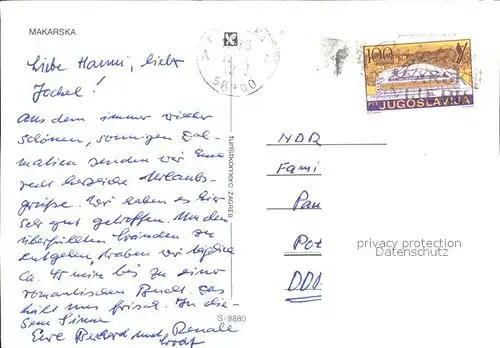 MAKARSKA
Liebe Hanni, lieber
Jochel!
Aus dem immer wieder
schönen, sonnigen Dal-
matien senden wir Eure
recht herzliche Urlaubs-
grüße. Wir haben es hier
sehr gut getroffen. Um den
überfüllten Stränden zu
entgehen, traben wir täglich
ca. 45 min bis zu einer
romantischen Bucht. Das
hält uns frisch. In die-
sem Sinne
Eure Berhard und Renate
turistkomerc ZAGREB
S-8880
58300
100
JUGOSLAVIJA
NDR
Fami
Pau
Pot
DDR
privacy protection
Datenschutz